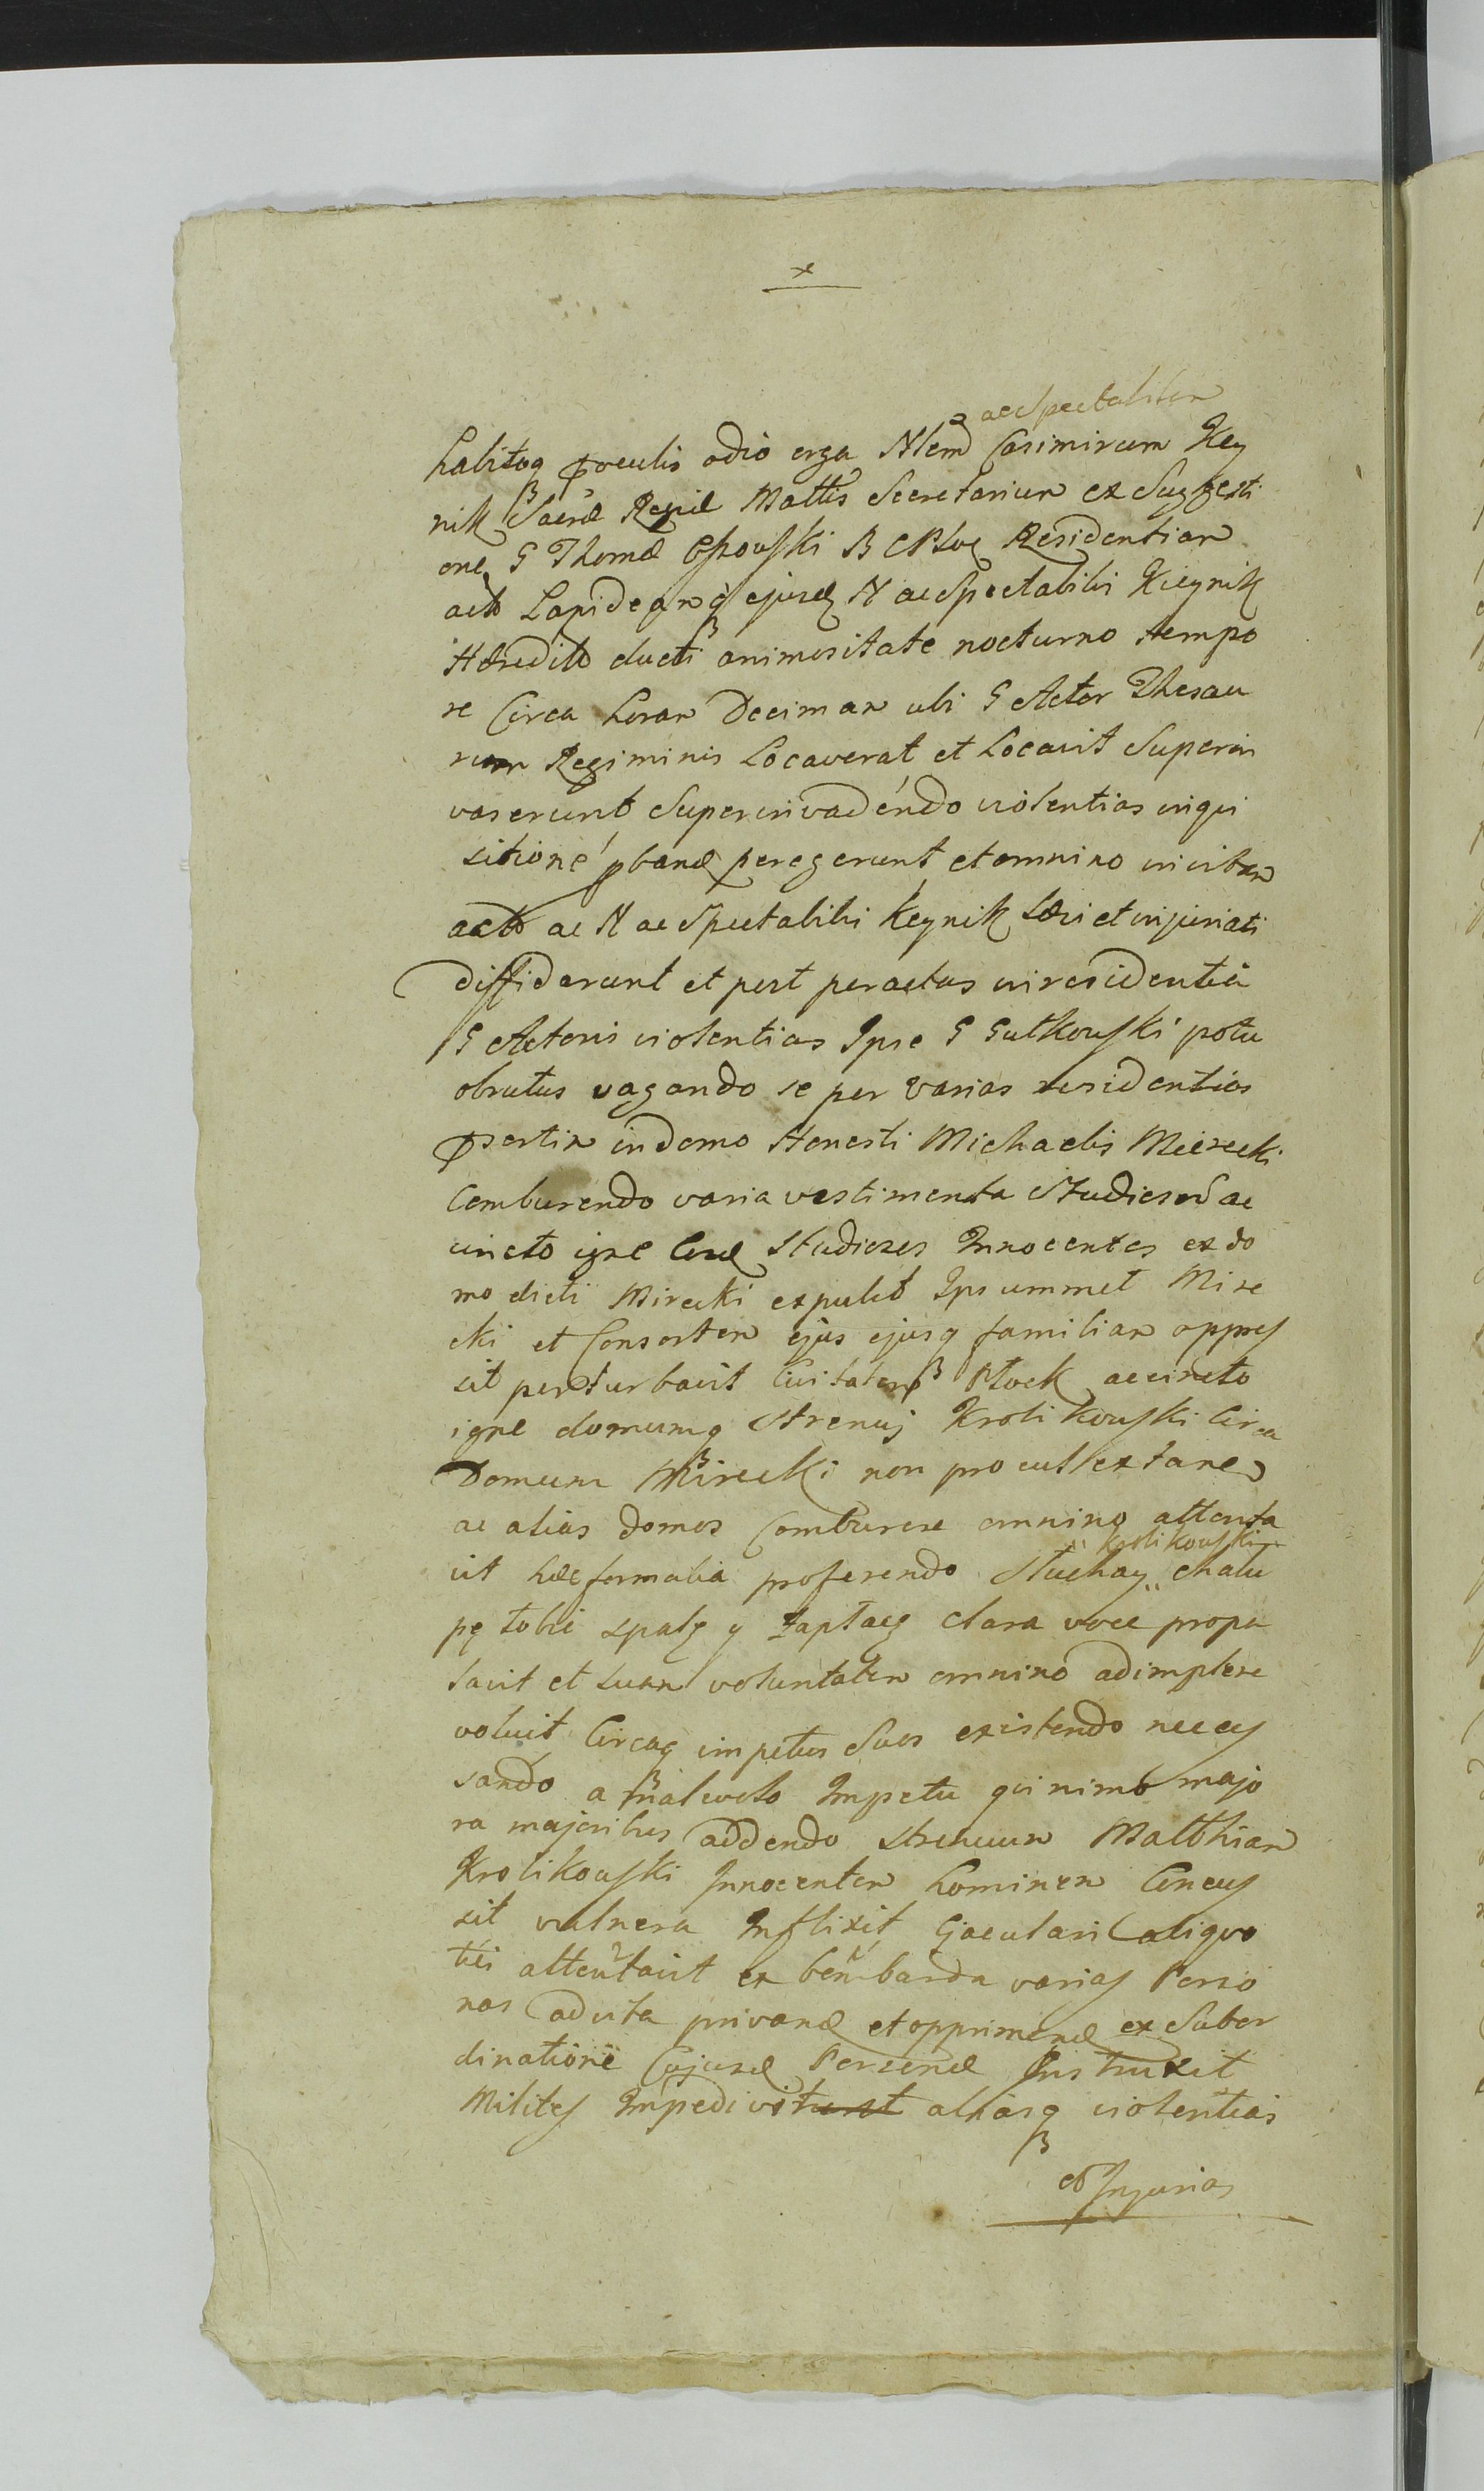 x
ac Spectabilem
habitoq oculis odio erga Nlem Casimirum Key
nik Sacræ Regiæ Mattis Secretarium ex Suggesti
one G Thomæ B C Ploc Residentiam
acto Lapideam q ejusd N ac Spectabilis Kieynik
Hæredito ducti animositate nocturno tempo
re Circa horam Decimam ubi G Actor Thesau
rum Regiminis Locaverat et Locavit Superin
vaserunt Superinvadendo violentias inqui
sitione pband peregerunt et omnino in vitam
acto ac N ac Spectabilis Keynik Læsi et injuriati
diffidarunt et post peractas in residentia
G Actoris violentias Ipse G Gutkowski potu
obrutus vagando se per varias residentias
psertim in domo Honesti Michaelis Mierecki
Comburendo varia vestimenta Studiosor ac
uncto igne Studiosos Innocentes ex do
mo dicti Mirecki expulit Ipsummet Mire
cki et Consortem ejus ejusq familiam oppres
sit perturbavit Civitatem Płock accincto
igne domumq Strenuj Krolikowski Circa
Domum Mirecki non procul extane
ac alias domos Comburere omnino attenta
vit hæc formalia proferendo Słuchay „Krolikowski" chału
pę tobie spalę y zapłacę clara voce propa
lavit et suam voluntatem omnino adimplere
voluit Circaq impetus Suos existendo nec ces
sando a malevolo Impetu qui nimo majo
ra majoribus addendo strenuum Matthiam
Krolikowski Innocentem hominem Concus
sit vulnera Inflixit Ejaculari aliquo
ties attentavit ex bombarda varias Perso
nas ad vita privand et opprimend ex Subor
dinatione Cujusd Personæ Instruxit
Milites Impedivit aliasq violentias
et Injurias